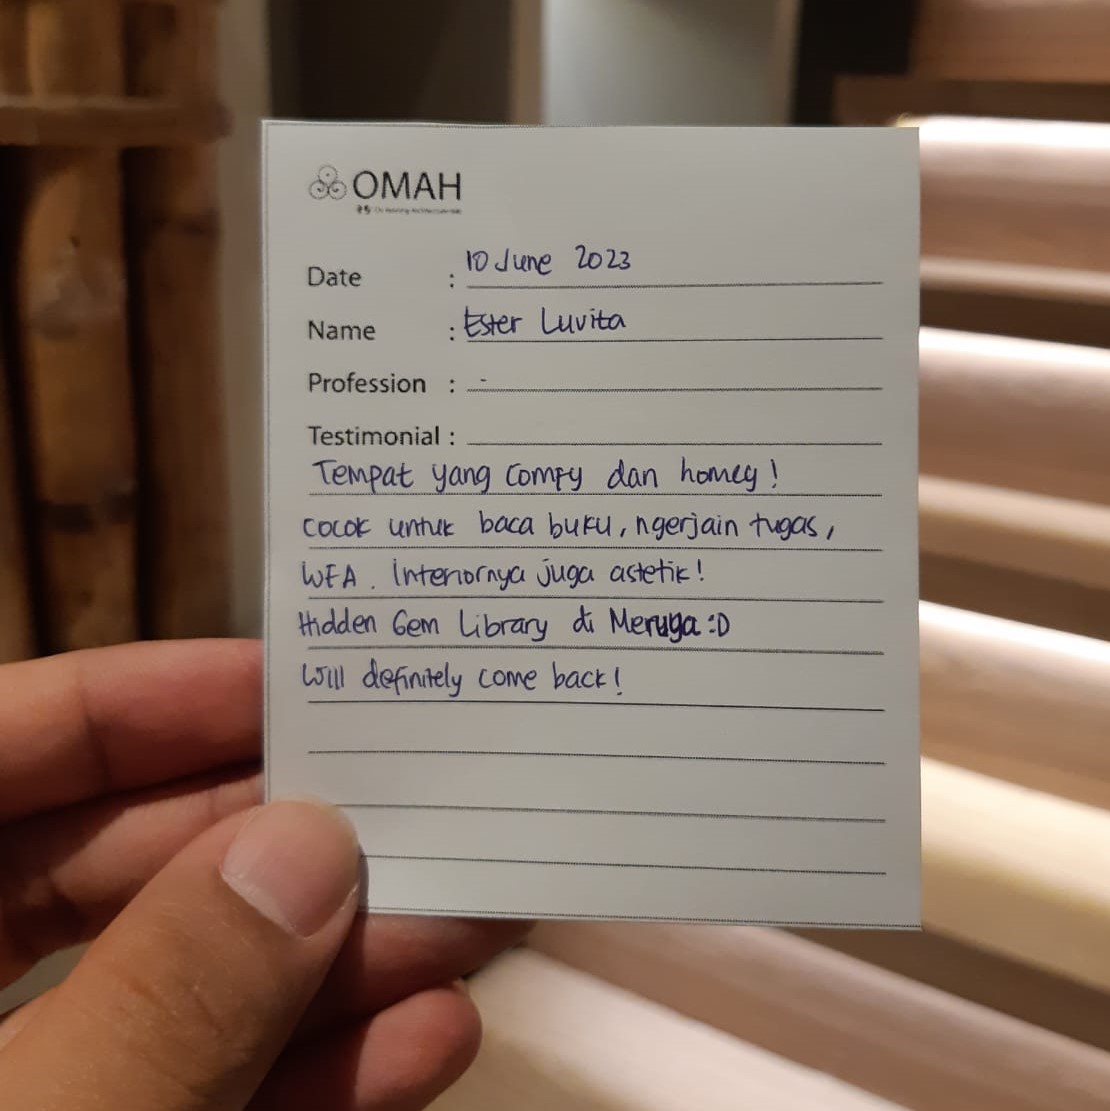 OMAH
Date : 10 June 2023
Name : Ester Luvita
Profession : -
Testimonial :
Tempat yang comfy dan homey!
cocok untuk baca buku, ngerjain tugas,
WFA. Interiornya juga astetik!
Hidden Gem Library di Meruya :D
Will definitely come back!